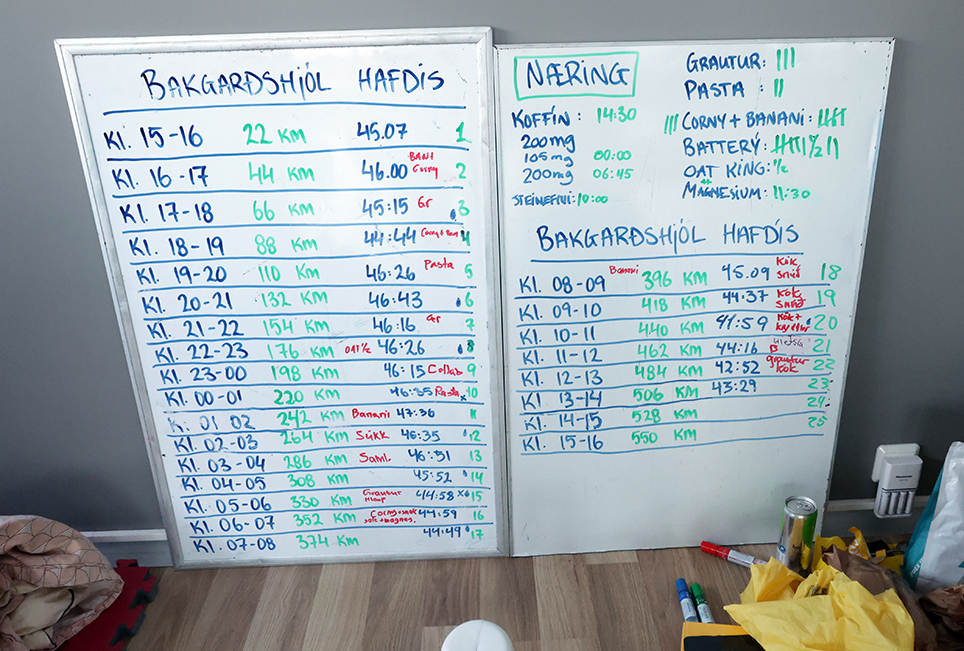 BAKGARÐSHJÓL HAFDÍS
Kl. 15-16 22 KM 45.07 1
Kl. 16-17 44 KM 46.00 BANI Corny 2
Kl. 17-18 66 KM 45:15 Gr 3
Kl. 18-19 88 KM 44:44 Corny + 4
Kl. 19-20 110 KM 46:26 Pasta 5
Kl. 20-21 132 KM 46:43 6
Kl. 21-22 154 KM 46:16 Gr 7
Kl. 22-23 176 KM OAT ½ 46:26 8
Kl. 23-00 198 KM 46:15 Collab 9
Kl. 00-01 220 KM 46:35 Pasta x 10
Kl. 01 02 242 KM Banani 47:36 11
Kl. 02-03 264 KM Súkk 46:35 12
Kl. 03-04 286 KM Saml. 46:31 13
Kl. 04-05 308 KM 45:52 14
Kl. 05-06 330 KM Grautur 44:58 15
Kl. 06-07 352 KM 44:59 16
Kl. 07-08 374 KM 44:49 17
NÆRING
KOFFÍN: 14:30
200mg
105mg 00:00
200mg 06:45
STEINEFNI: 10:00
GRAUTUR: |||
PASTA: ||
||| CORNY + BANANI:
BATTERÝ: ½ ||
OAT KING: ½
MAGNESIUM: 11:30
BAKGARÐSHJÓL HAFDÍS
Kl. 08-09 Banani 396 KM 45.09 Kók 18
Kl. 09-10 418 KM 44:37 Kók 19
Kl. 10-11 440 KM 41:59 Kók + 20
Kl. 11-12 462 KM 44:16 21
Kl. 12-13 484 KM 42:52 grautur kók 22
Kl. 13-14 506 KM 43:29 23
Kl. 14-15 528 KM 24
Kl. 15-16 550 KM 25
Panasonic